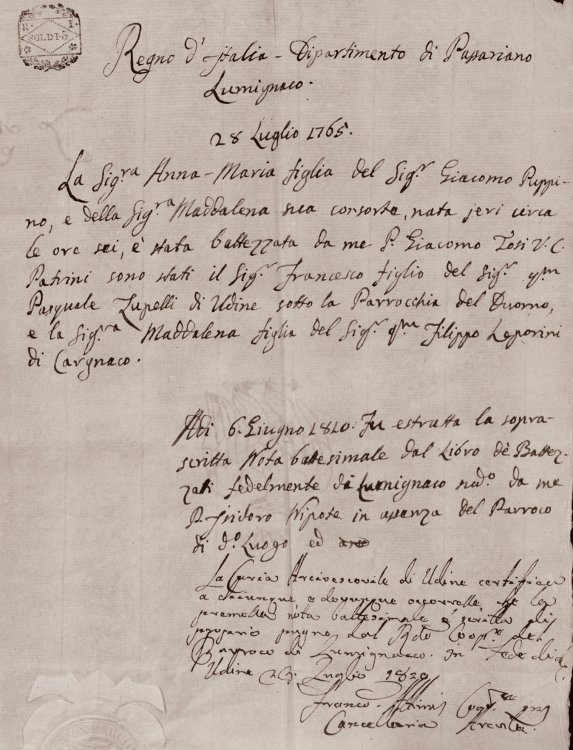 R. I.
SOLDI 5
Regno d'Italia - Dipartimento di Passariano
Lumignaco.
28 Luglio 1765.
La Sig.ra Anna-Maria figlia del Sig.r Giacomo Puppi-
no, e della Sig.ra Maddalena sua consorte, nata jeri circa
le ore sei, è stata battezzata da me P. Giacomo Tosi V. C.
Patrini sono stati il Sig.r Francesco figlio del Sig.r qm
Pasquale Zupelli di Udine sotto la Parrocchia del Duomo,
e la Sig.ra Maddalena figlia del Sig.r qm Filippo Leporini
di Cargnaco.
Adi 6. Giugno 1810. Fu estratta la sopra-
scritta Nota battesimale dal Libro de' Battez-
zati fedelmente di Lumignaco sud.o da me
P. Isidoro Nipote in assenza del Parroco
di d.o Luogo ed
La Curia Arcivescovile di Udine certifica
a chiunque e dovunque occorresse, che la
premessa nota battesimale è scritta di
proprio pugno dal Rdo
Parroco di Lumignacco. In Fede di che
Udine Luglio 1820
Franco
Cancellaria